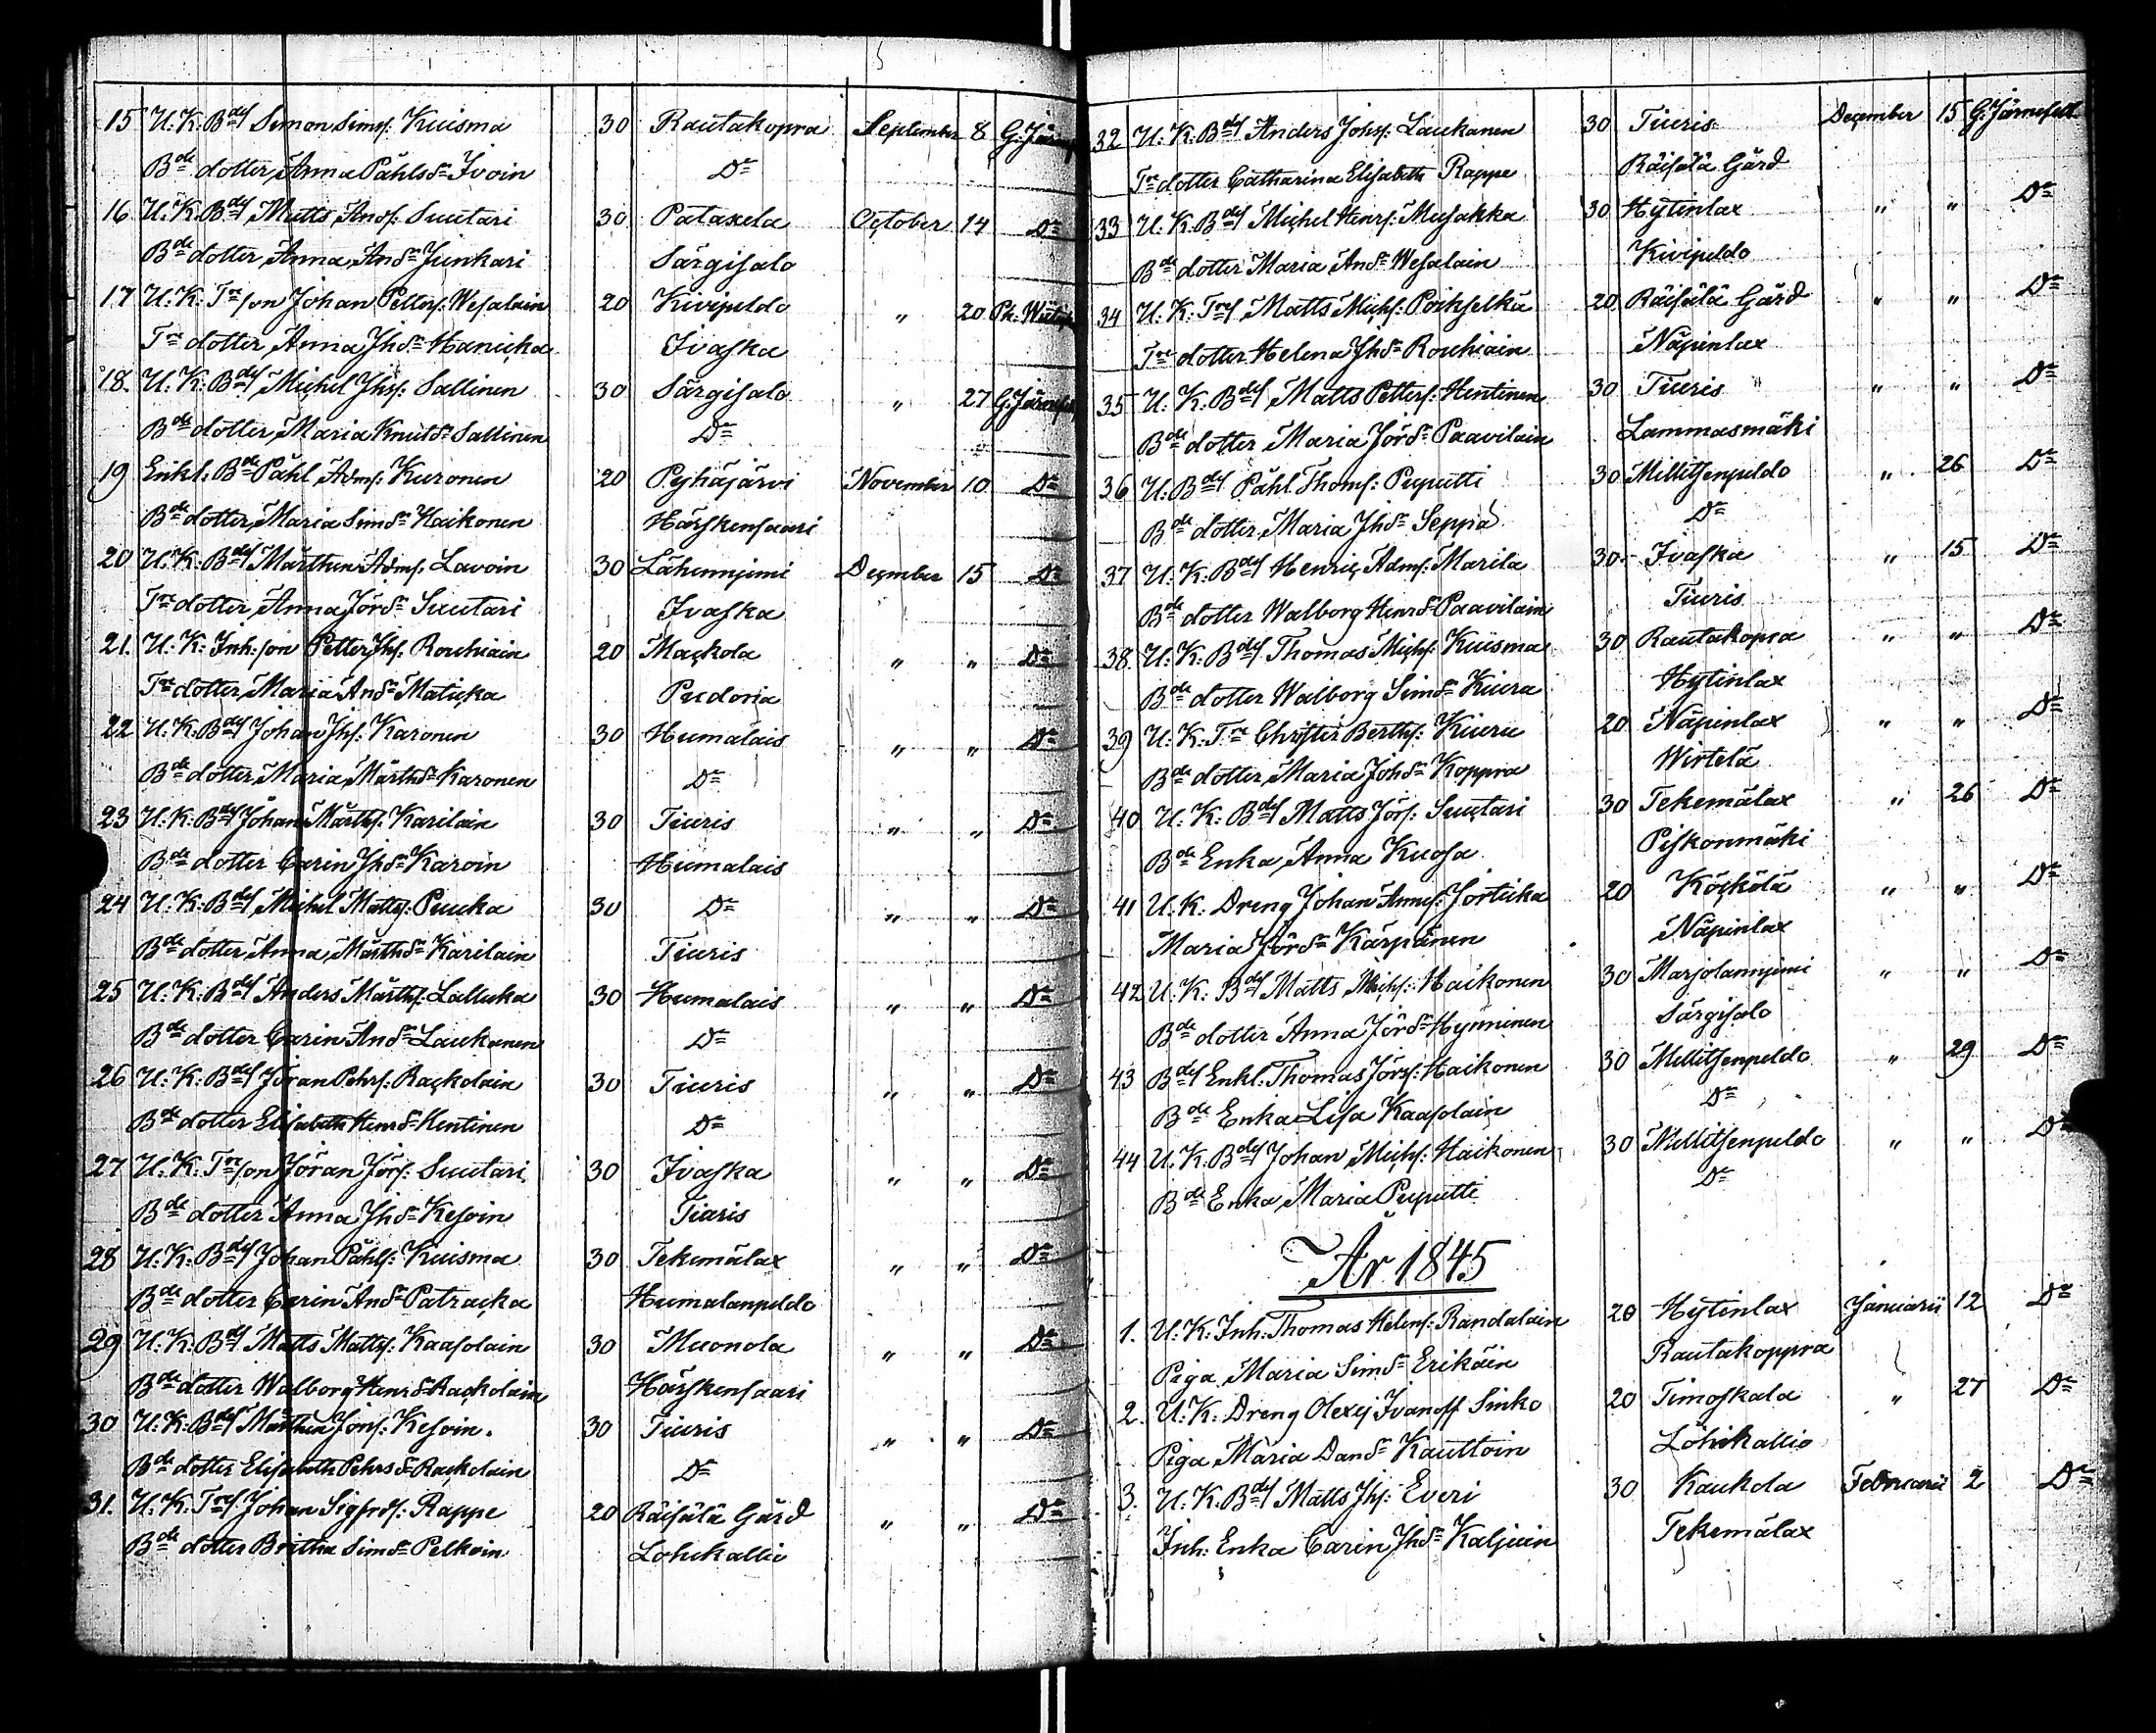 15 U. K. Bdes Simon Sims: Kuisma 30 Rautakopra September 8 G. Järnef
Bde dotter Anna Påhlsdr Ivoin Do
16 U. K. Bdes Matts Ands: Suutari 30 Pataxela October 14 Do
Bde dotter Anna Andsdr Junkari Särgisalo
17 U. K. Tre son Johan Petters: Wesalain 20 Kivipeldo " 20
Tre dotter Anna Jhsdr Hanukka Ivaska
18. U. K. Bdes Michel Jhs: Sallinen 30 Särgisalo " 27 G. Järnef
Bde dotter Maria Knutsdr Sallinen Do
19 Enkl: Bde Påhl Adms: Kuronen 20 Pyhäjärvi November 10 Do
Bde dotter Maria Simsdr Haikonen Härskensaari
20 U. K. Bdes Mårthen Adms: Lavoin 30 Lähennjemi December 15 Do
Tre dotter Anna Jörsdr Suutari Ivaska
21. U. K. Inh: son Petter Jhs: Rouhiain 20 Mackola " " Do
Tre dotter Maria Andsdr Matikka Pudoria
22 U. K. Bdes Johan Jhs: Karonen 30 Humalais " " Do
Bde dotter Maria Mårthsdr Karonen Do
23 U. K. Bdes Johan Mårths: Karilain 30 Tiuris " " Do
Bde dotter Carin Jhsdr Karoin Humalais
24 U. K. Bdes Michel Matts: Puuka 30 Do " " Do
Bde dotter Anna Mårthsdr Karilain Tiuris
25 U. K. Bdes Anders Mårths: Lallukka 30 Humalais " " Do
Bde dotter Carin Andsdr Laukanen Do
26 U. K. Bdes Jöran Pehrs: Rackolain 30 Tiuris " " Do
Bde dotter Elisabeth Henrsdr Hentinen Do
27 U. K. Tre son Jöran Jörs: Suutari 30 Ivaska " " Do
Bde dotter Anna Jhsdr Kesoin Tiuris
28 U. K. Bdes Johan Påhls: Kuisma 30 Tekemälax " " Do
Bde dotter Carin Andsdr Patracka Humalanpeldo
29 U. K. Bdes Matts Matts: Kaasolain 30 Muonola " " Do
Bde dotter Walborg Henrsdr Rackolain Härskensaari
30 U. K. Bdes Mårthen Jöns: Kesoin. 30 Tiuris " " Do
Bde dotter Elisabeth Pehrsdr Rackolain Do
31. U. K. Tres Johan Sigfrds: Rappe 20 Räisälä Gård " " Do
Bde dotter Britha Simsdr Pelkoin Lohikallio
32 U. K. Bdes Anders Johs: Laukanen 30 Tiuris December 15 G. Järnefelt
Tre dotter Catharina Elisabeth Rappe Räisälä Gård
33 U. K. Bdes Michel Henrs: Musakka 30 Hytinlax " " Do
Bde dotter Maria Andsdr Wesalain Kivipeldo
34 U. K. Tres Matts Michs: Poikselkä 20 Räisälä Gård " " Do
Tre dotter Helena Jhsdr Rouhiain Näpinlax
35 U. K. Bdes Matts Petters: Hentinen 30 Tiuris " " Do
Bde dotter Maria Jörsdr Paavilain Lammasmäki
36 U. Bdes Påhl Thoms: Puputti 30 Millitsenpeldo " 26 Do
Bde dotter Maria Jhsdr Seppä Do
37 U. K. Bdes Henric Adms: Marila 30 Ivaska " 15 Do
Bde dotter Walborg Henrsdr Paavilain Tiuris
38. U. K. Bdes Thomas Michs: Kuisma 30 Rautakopra " " Do
Bde dotter Walborg Simsdr Kiuru Hytinlax
39 U. K. Tre Christer Berths: Kiuru 20 Näpinlax " " Do
Bde dotter Maria Johsdr Koppra Wirtelä
40 U. K. Bdes Matts Jörs: Suutari 30 Tekemälax " 26 Do
Bde Enka Anna Kuosa Piskonmäki
41 U. K. Dreng Johan Anns: Jortikka 20 Köckölä " " Do
Maria Jörsdr Kärpänen Näpinlax
42 U. K. Bdes Matts Michs: Haikonen 30 Marjolannjemi " " Do
Bde dotter Anna Jörsdr Hynninen Särgisalo
43 Bdes Enkl: Thomas Jörs: Haikonen 30 Millitsenpeldo " 29 Do
Bde Enka Lisa Kaasolain Do
44 U. K. Bdes Johan Michs: Haikonen 30 Millitsenpeldo " " Do
Bde Enka Maria Puputti Do
År 1845
1. U. K. Inh: Thomas Helens: Randalain 20 Hytinlax Januarii 12 Do
Piga Maria Simsdr Erikäin Rautakoppra
2. U. K. Dreng Olexij Ivanoff Sinko 20 Timoskala " 27 Do
Piga Maria Dansdr Kauttoin Lohikallio
3. U. K. Bdes Matts Jhs: Everi 30 Kaukola Februarii 2 Do
Inh: Enka Carin Jhsdr Kaljuin Tekemälax